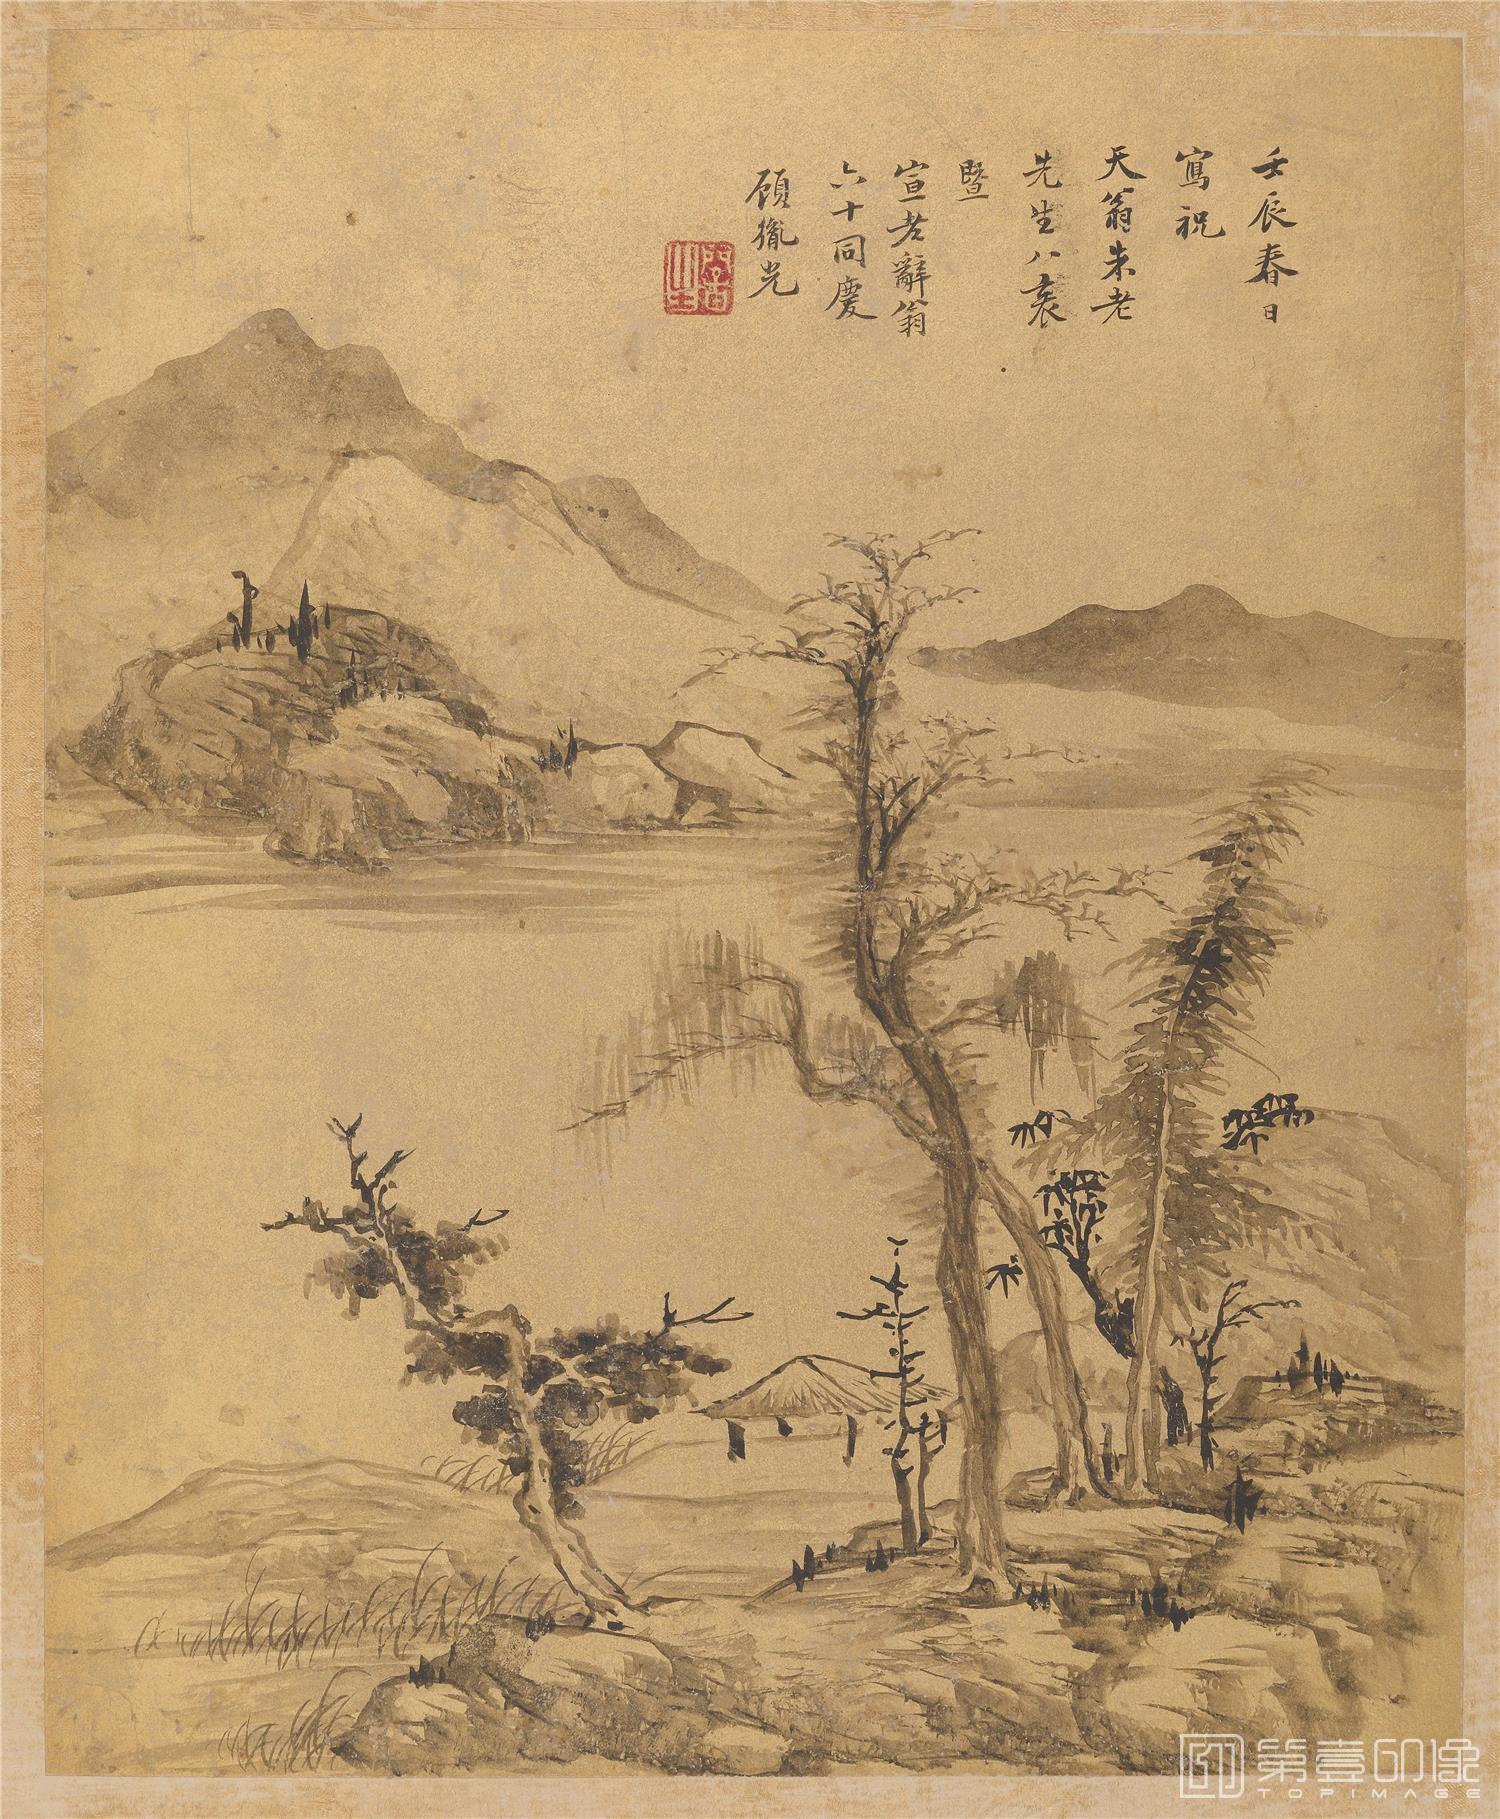 壬辰春日
寫祝
天翁朱老
先生八袠
暨
宣老辭翁
六十同慶
顧胤光
第壹印像
TOPIMAGE